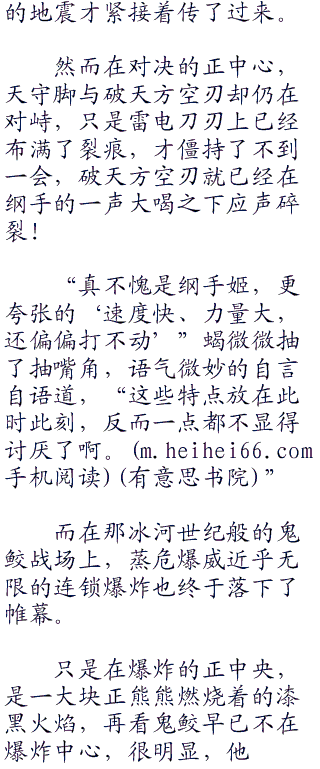 的地震才紧接着传了过来。
然而在对决的正中心，
天守脚与破天方空刃却仍在
对峙，只是雷电刀刃上已经
布满了裂痕，才僵持了不到
一会，破天方空刃就已经在
纲手的一声大喝之下应声碎
裂！
“真不愧是纲手姬，更
夸张的‘速度快、力量大，
还偏偏打不动’”蝎微微抽
了抽嘴角，语气微妙的自言
自语道，“这些特点放在此
时此刻，反而一点都不显得
讨厌了啊。(m.heihei66.com
手机阅读)(有意思书院)”
而在那冰河世纪般的鬼
鲛战场上，蒸危爆威近乎无
限的连锁爆炸也终于落下了
帷幕。
只是在爆炸的正中央，
是一大块正熊熊燃烧着的漆
黑火焰，再看鬼鲛早已不在
爆炸中心，很明显，他